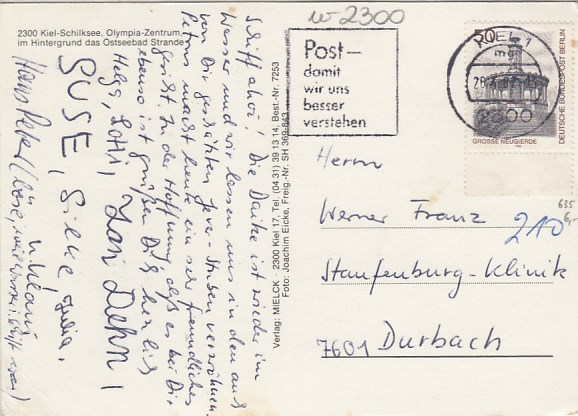 2300 Kiel-Schilksee, Olympia-Zentrum,
im Hintergrund das Ostseebad Strande
w-2300
Post-
damit
wir uns
besser
verstehen
KIEL 1
2300
50
DEUTSCHE BUNDESPOST BERLIN
GROSSE NEUGIERDE
635
6,-
210
Herrn
Werner Franz
Staufenburg-Klinik
7601 Durbach
Verlag: MIELCK, 2300 Kiel 17, Tel. (04 31) 39 13 14, Best.-Nr. 7253
Foto: Joachim Eicke, Freig.-Nr. SH 369-843
Schiff ahoi! Die Daike ist wieder im
Wasser und wir lassen uns in den auch
von Dir geschätzten Jever-Stuben verwöhnen.
Petrus macht heute ein sehr freundliches
Gesicht. In der Hoffnung, daß es bei Dir
ebenso ist grüßen Dich herzlich
Helga, Lotti, Jan Dehn,
SUSE, Silke, Julia,
u. Klaus
Hans Peter